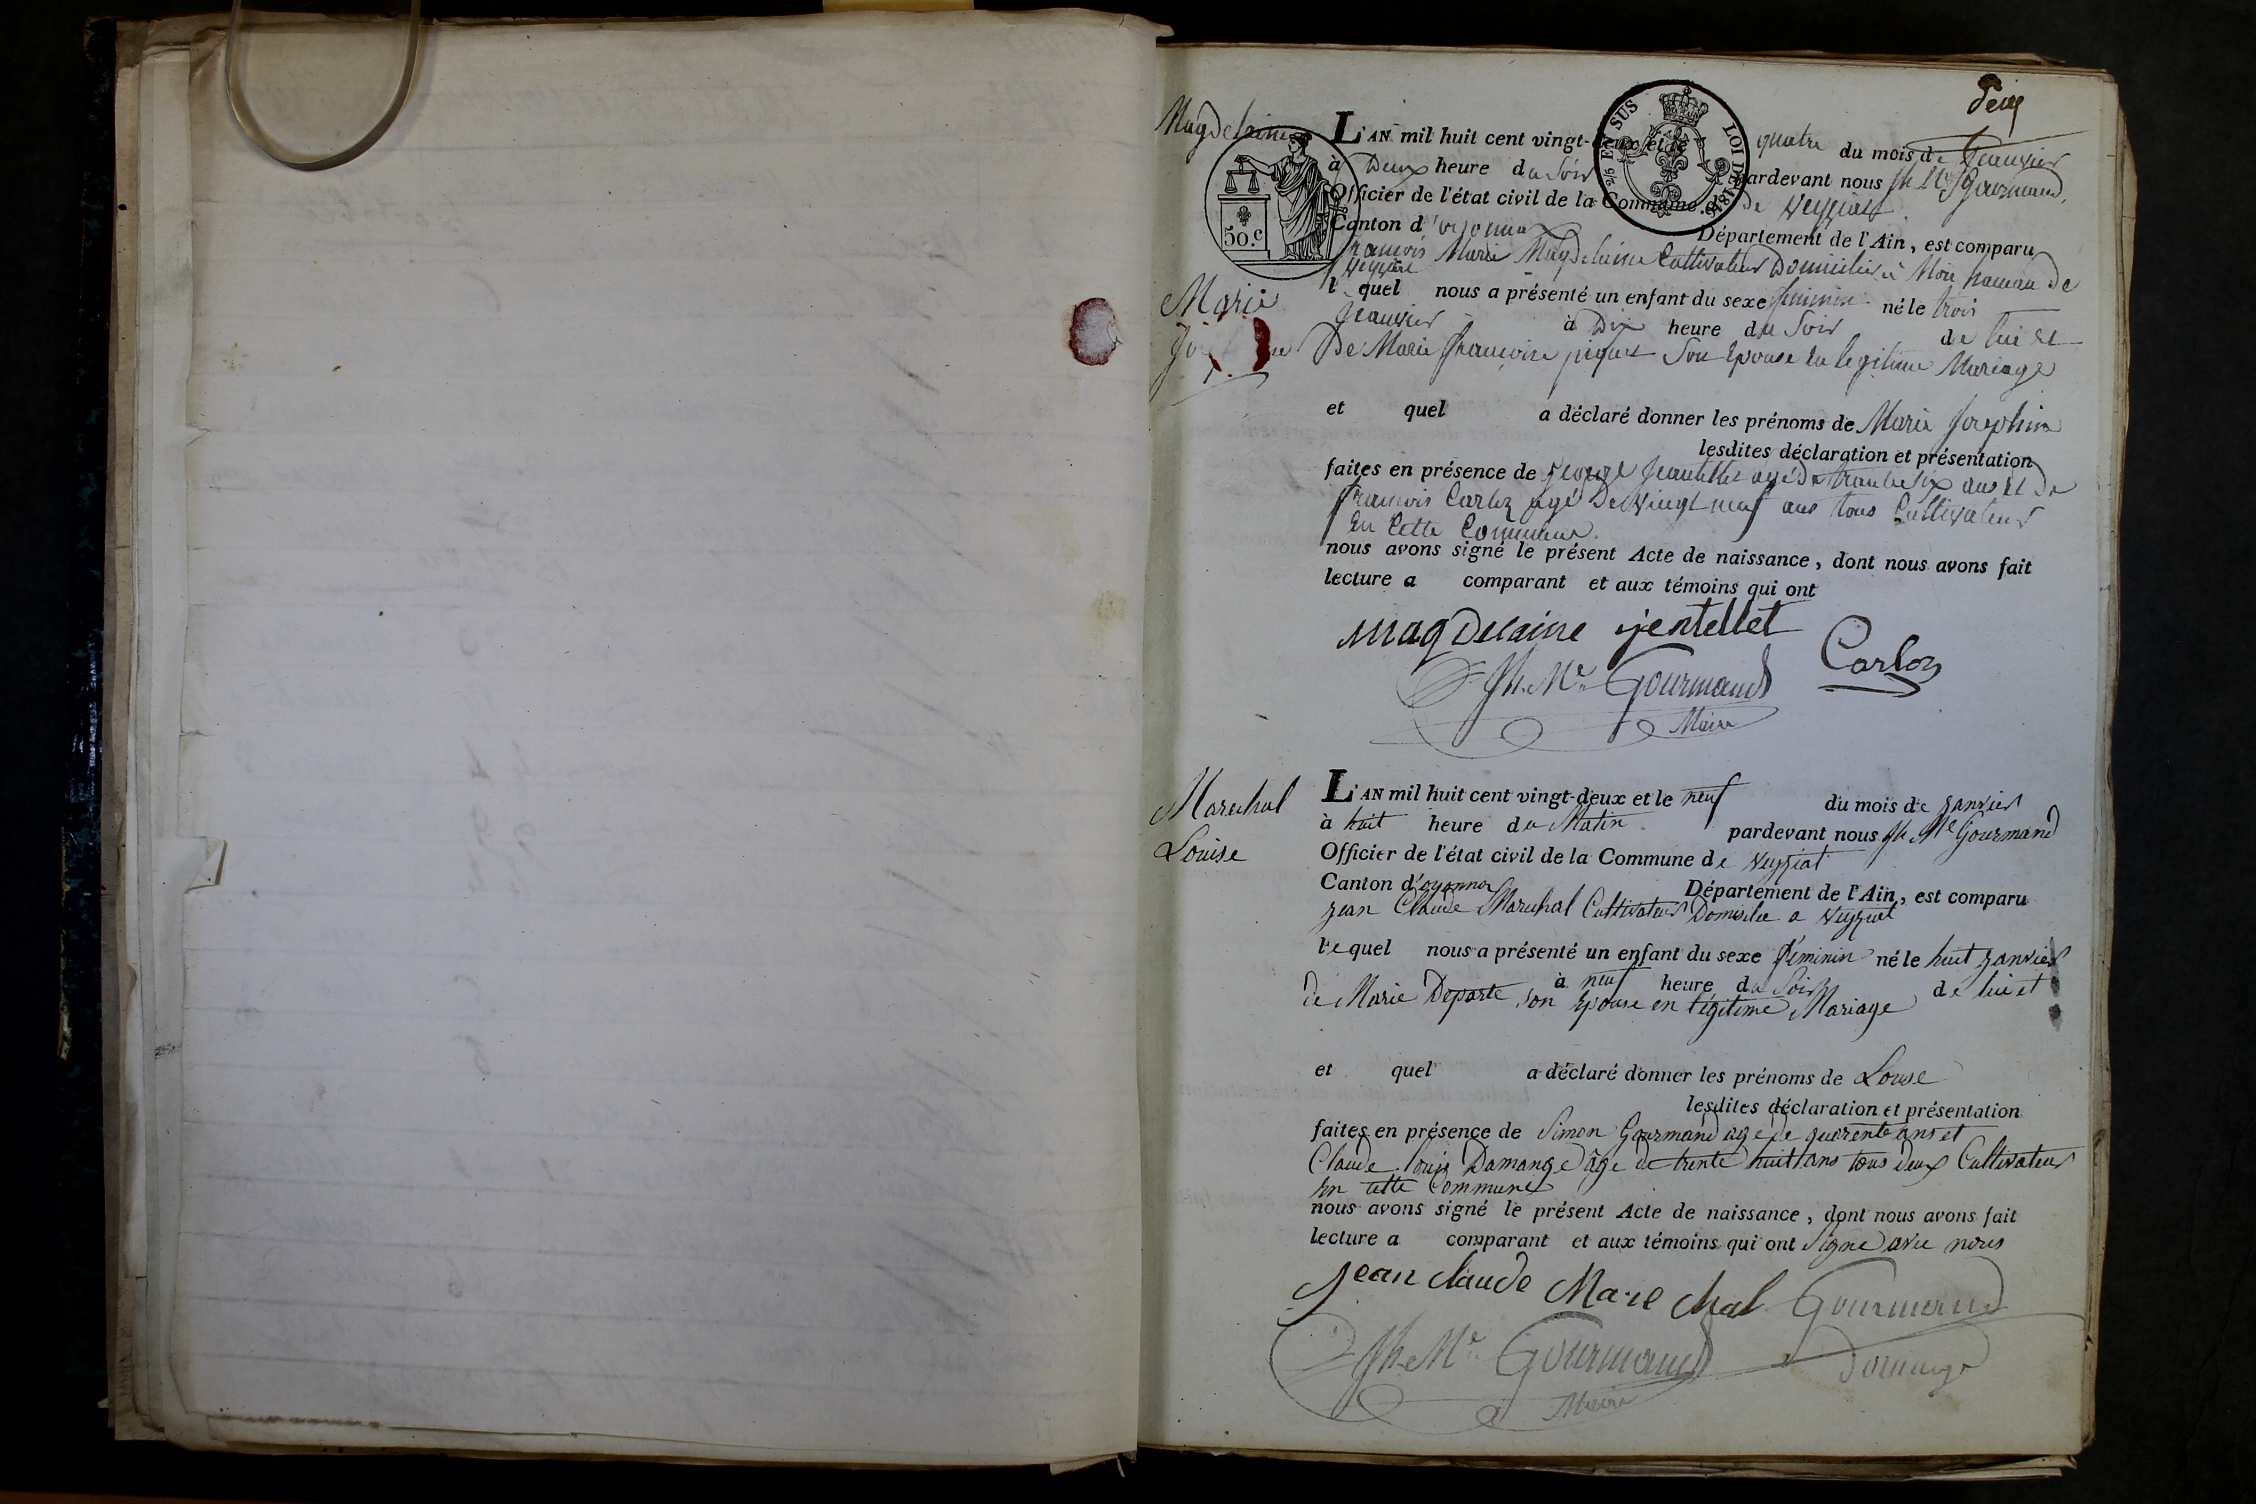 deux
Magdelaine
L'AN mil huit cent vingt-deux et le quatre du mois de Jeanvier
à Deux heure du Soir pardevant nous Jh Me Gourmand
Officier de l'état civil de la Commune de Veyziat
Canton d'oyonnax Département de l'Ain, est comparu
francois Marie Magdelaine Cultivateur Domicilié à Mon hameau de
Veyziat
Marie
l quel nous a présenté un enfant du sexe feminin né le trois
Jeanvier à Dix heure du Soir de lui et
De Marie francoise piquet Son Epouse en legitime Mariage
et quel a déclaré donner les prénoms de Marie Josephine
lesdites déclaration et présentation
faites en présence de Jeantellet agé de trante six ans et de
francois Carloz agé De Vingt neuf ans tous Cultivateur
En Cette Commune.
nous avons signé le présent Acte de naissance, dont nous avons fait
lecture a comparant et aux témoins qui ont
magdelaine jentellet
Carloz
Jh Me Gourmand
Maire
50.c
5/2 EN SUS LOI DE 1816
Marechal
Louise
L'AN mil huit cent vingt-deux et le neuf du mois de janvier
à huit heure du Matin pardevant nous Jh Me Gourmand
Officier de l'état civil de la Commune de Veyziat
Canton d'oyonnax Département de l'Ain, est comparu
jean Claude Marechal Cultivateur Domicilie a Veyziat
le quel nous a présenté un enfant du sexe féminin né le huit janvier
à neuf heure du Soir de lui et
de Marie Departe son Epouse en légitime Mariage
et quel a déclaré donner les prénoms de Louise
lesdites déclaration et présentation
faites en présence de Simon Gourmand agé de quarente ans et
Claude louis Damange âge de trente huit ans tous deux Cultivateur
En cette Commune
nous avons signé le présent Acte de naissance, dont nous avons fait
lecture a comparant et aux témoins qui ont Signé avec nous
jean claude Marechal Gourmand
Jh Me Gourmand Domange
Maire